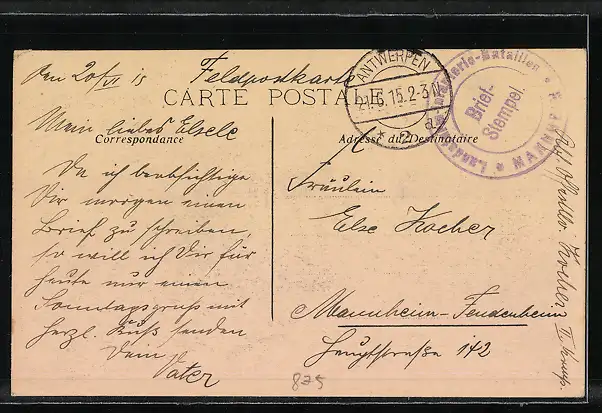 den 20/VI 15
Feldpostkarte
CARTE POSTALE
ANTWERPEN
21.6.15.2-3N
* 2 a
Landsturm-Infanterie-Bataillon * MANNHEIM *
Brief-
Stempel.
Mein liebes Elsele
Correspondance
Adresse du Destinataire
Da ich beabsichtige
Dir morgen einen
Brief zu schreiben,
so will ich Dir für
heute nur einen
Sonntagsgruß mit
herzl. Kuß senden
Dein
Vater
Fräulein
Else Kocher
Mannheim-Feudenheim
Hauptstraße 142
Kocher II
825